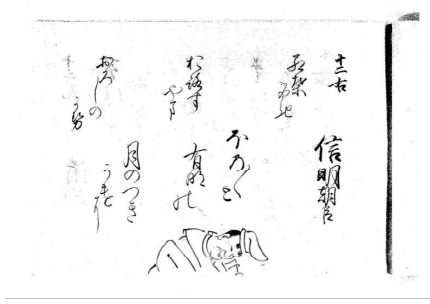 十二右
信明朝臣
ほの〱と
有明の
月のつき
かけに
紅葉ふき
おろす
やま
おろしの